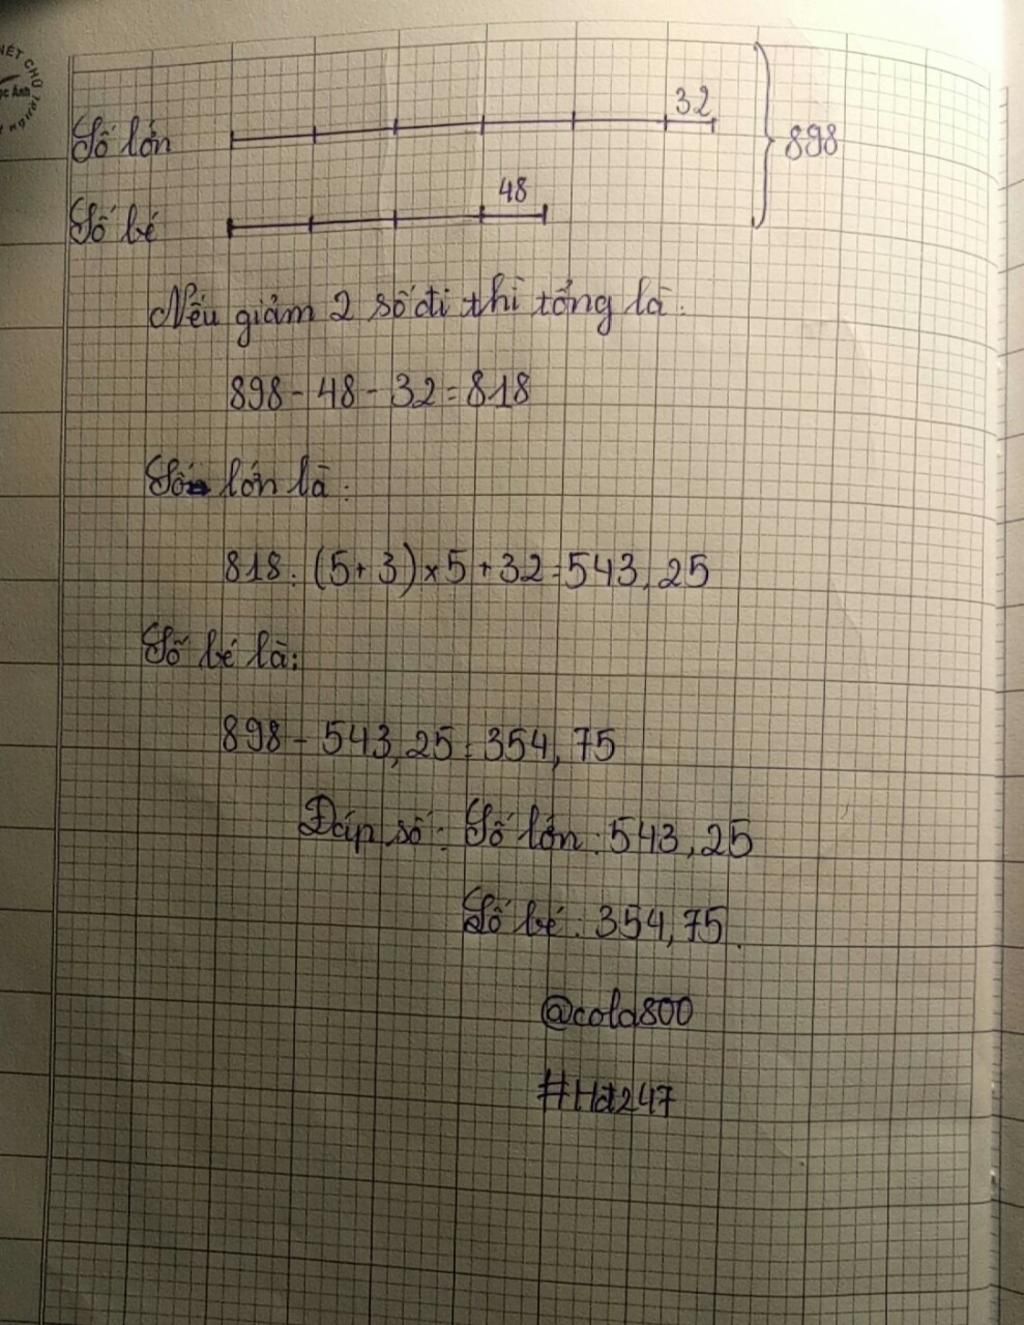 NÉT CHỮ
32
Số lớn
898
48
Số bé
Nếu giảm 2 số đi thì tổng là:
898 - 48 - 32 = 818
Số lớn là:
818 : (5 + 3) x 5 + 32 = 543,25
Số bé là:
898 - 543,25 = 354,75
Đáp số: Số lớn: 543,25
Số bé: 354,75.
@cold800
#Hđ247